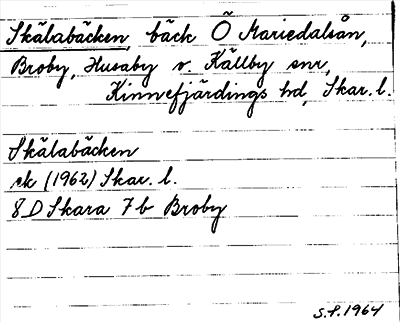 Skälabäcken, bäck Ö Mariedalsån,
Broby, Husaby o. Källby snr,
Kinnefjärdings hd, Skar. l.
Skälabäcken
ek (1962) Skar. l.
8D Skara 7b Broby
S.F. 1964